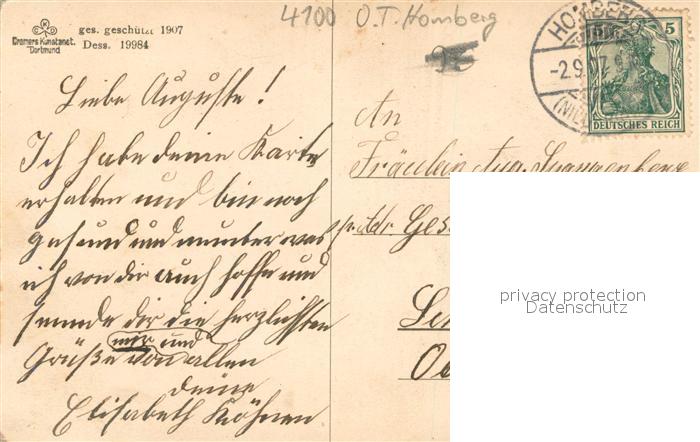 Cramers Kunstanst.
Dortmund
ges. geschützt 1907
Dess. 19984
4100 O.T. Homberg
HOMBERG
-2.9.07
5
DEUTSCHES REICH
Liebe Auguste!
Ich habe deine Karte
erhalten und bin noch
gesund und munter was
ich von dir auch hoffe und
sennde dir die herzlichsten
mir und
Grüße von allen
deine
Elisabeth Köhnen
An
Fräulein Aug.
Adr.
privacy protection
Datenschutz